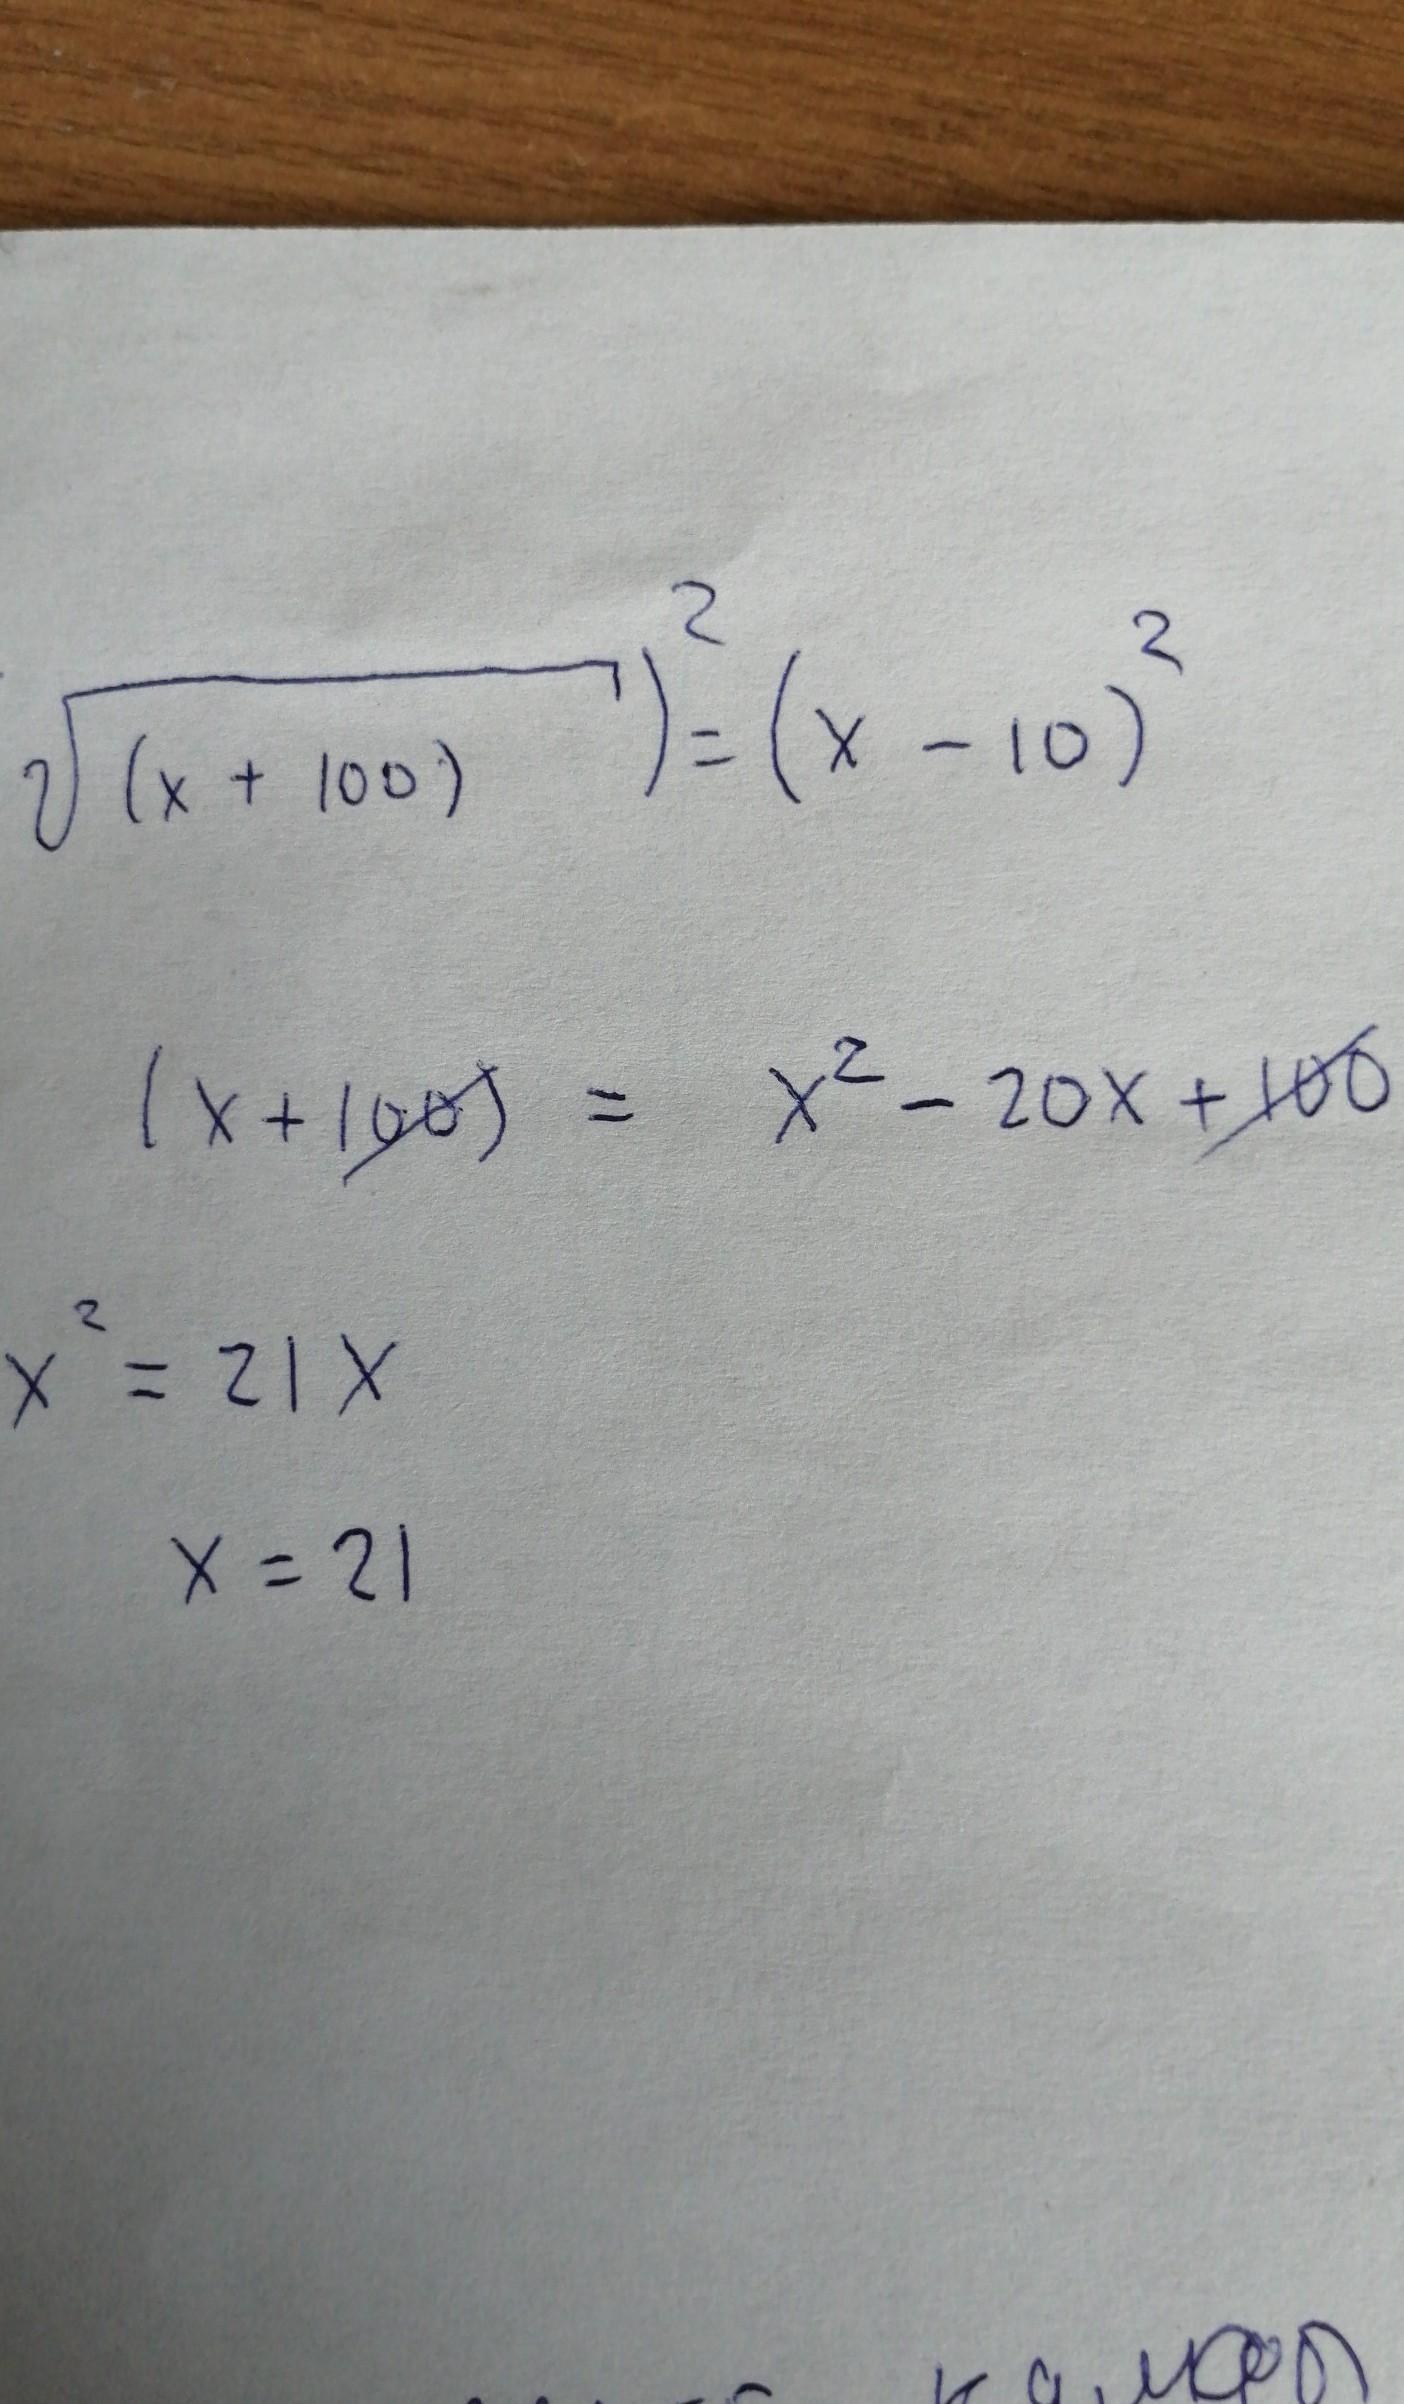 √(x + 100) )² = (x - 10)²
(x + 100) = x² - 20x + 100
x² = 21x
x = 21